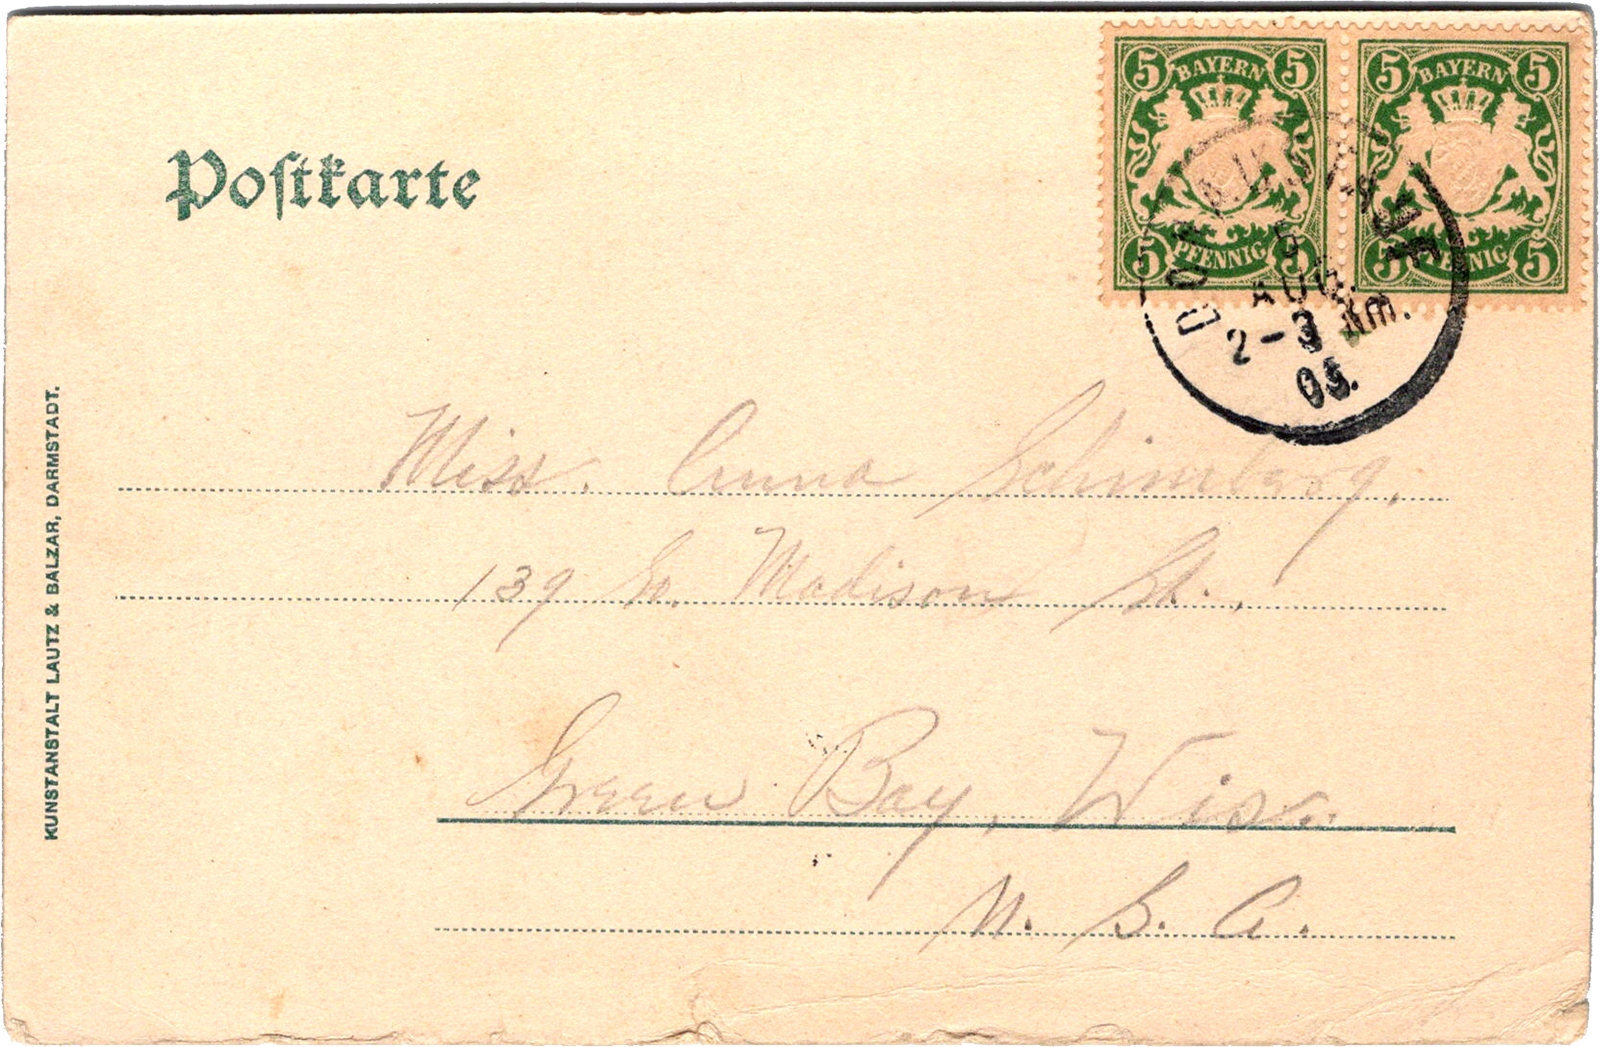 5 BAYERN 5
5 PFENNIG 5
5 BAYERN 5
5 PFENNIG 5
DONAUSTAUF
5
AUG.
2-3 Nm.
05.
Postkarte
Miss. Anna Schimberg,
139 So. Madison St.,
Green Bay, Wisc.
U. S. A.
KUNSTANSTALT LAUTZ & BALZAR, DARMSTADT.